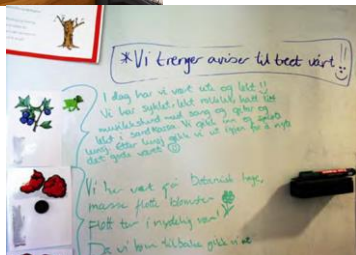 *Vi trenger aviser til teet vårt!!
I dag har vi vært ute og lekt!!
Vi har syklet, lekt musikk, hatt litt
musikkstund med sang og gitar og
lekt i sandkassa. Vi gikk inn og spiste
lunsj. Etter lunsj gikk vi ut igjen for å nyte
det gode været
Vi har vært på Botanisk hage,
masse flotte blomster
Flott tur i nydelig vær!
Da vi kom tilbake gikk vi ut